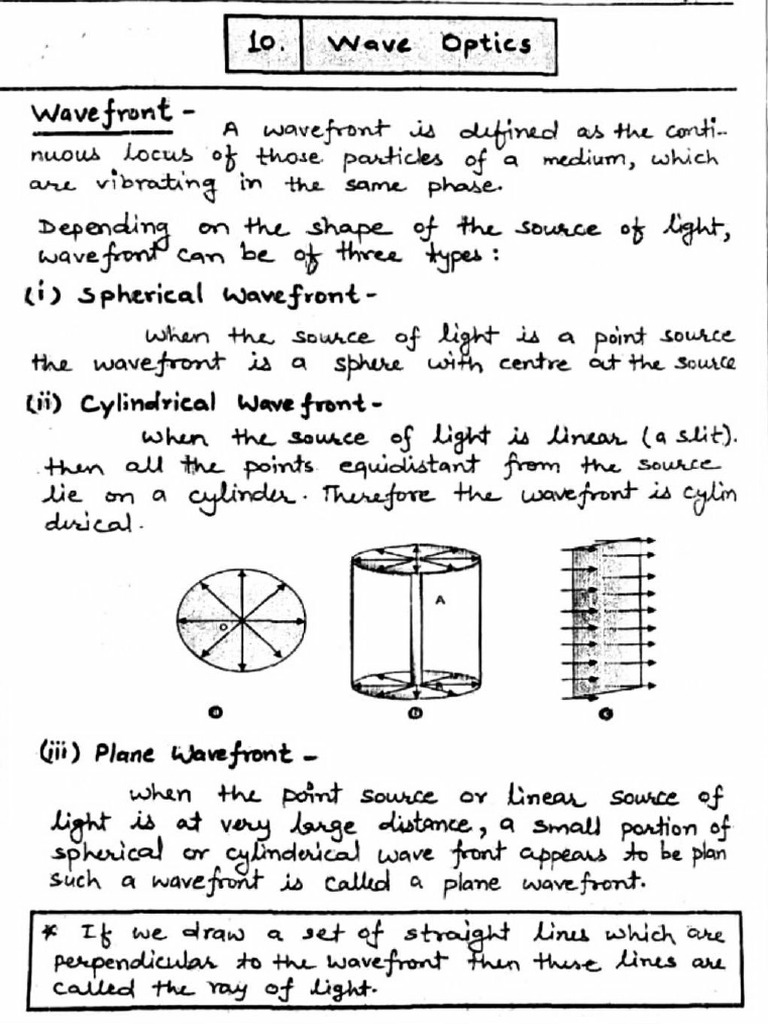 10. Wave Optics
Wavefront -
A wavefront is defined as the conti-
nuous locus of those particles of a medium, which
are vibrating in the same phase.
Depending on the shape of the source of light,
wavefront can be of three types :
(i) Spherical Wavefront -
When the source of light is a point source
the wavefront is a sphere with centre at the source
(ii) Cylindrical Wavefront -
When the source of light is linear (a slit).
then all the points equidistant from the source
lie on a cylinder. Therefore the wavefront is cylin
derical.
O
A
a b c
(iii) Plane Wavefront -
When the point source or linear source of
light is at very large distance, a small portion of
spherical or cylinderical wave front appears to be plan
such a wavefront is called a plane wavefront.
* If we draw a set of straight lines which are
perpendicular to the wavefront then these lines are
called the ray of light.